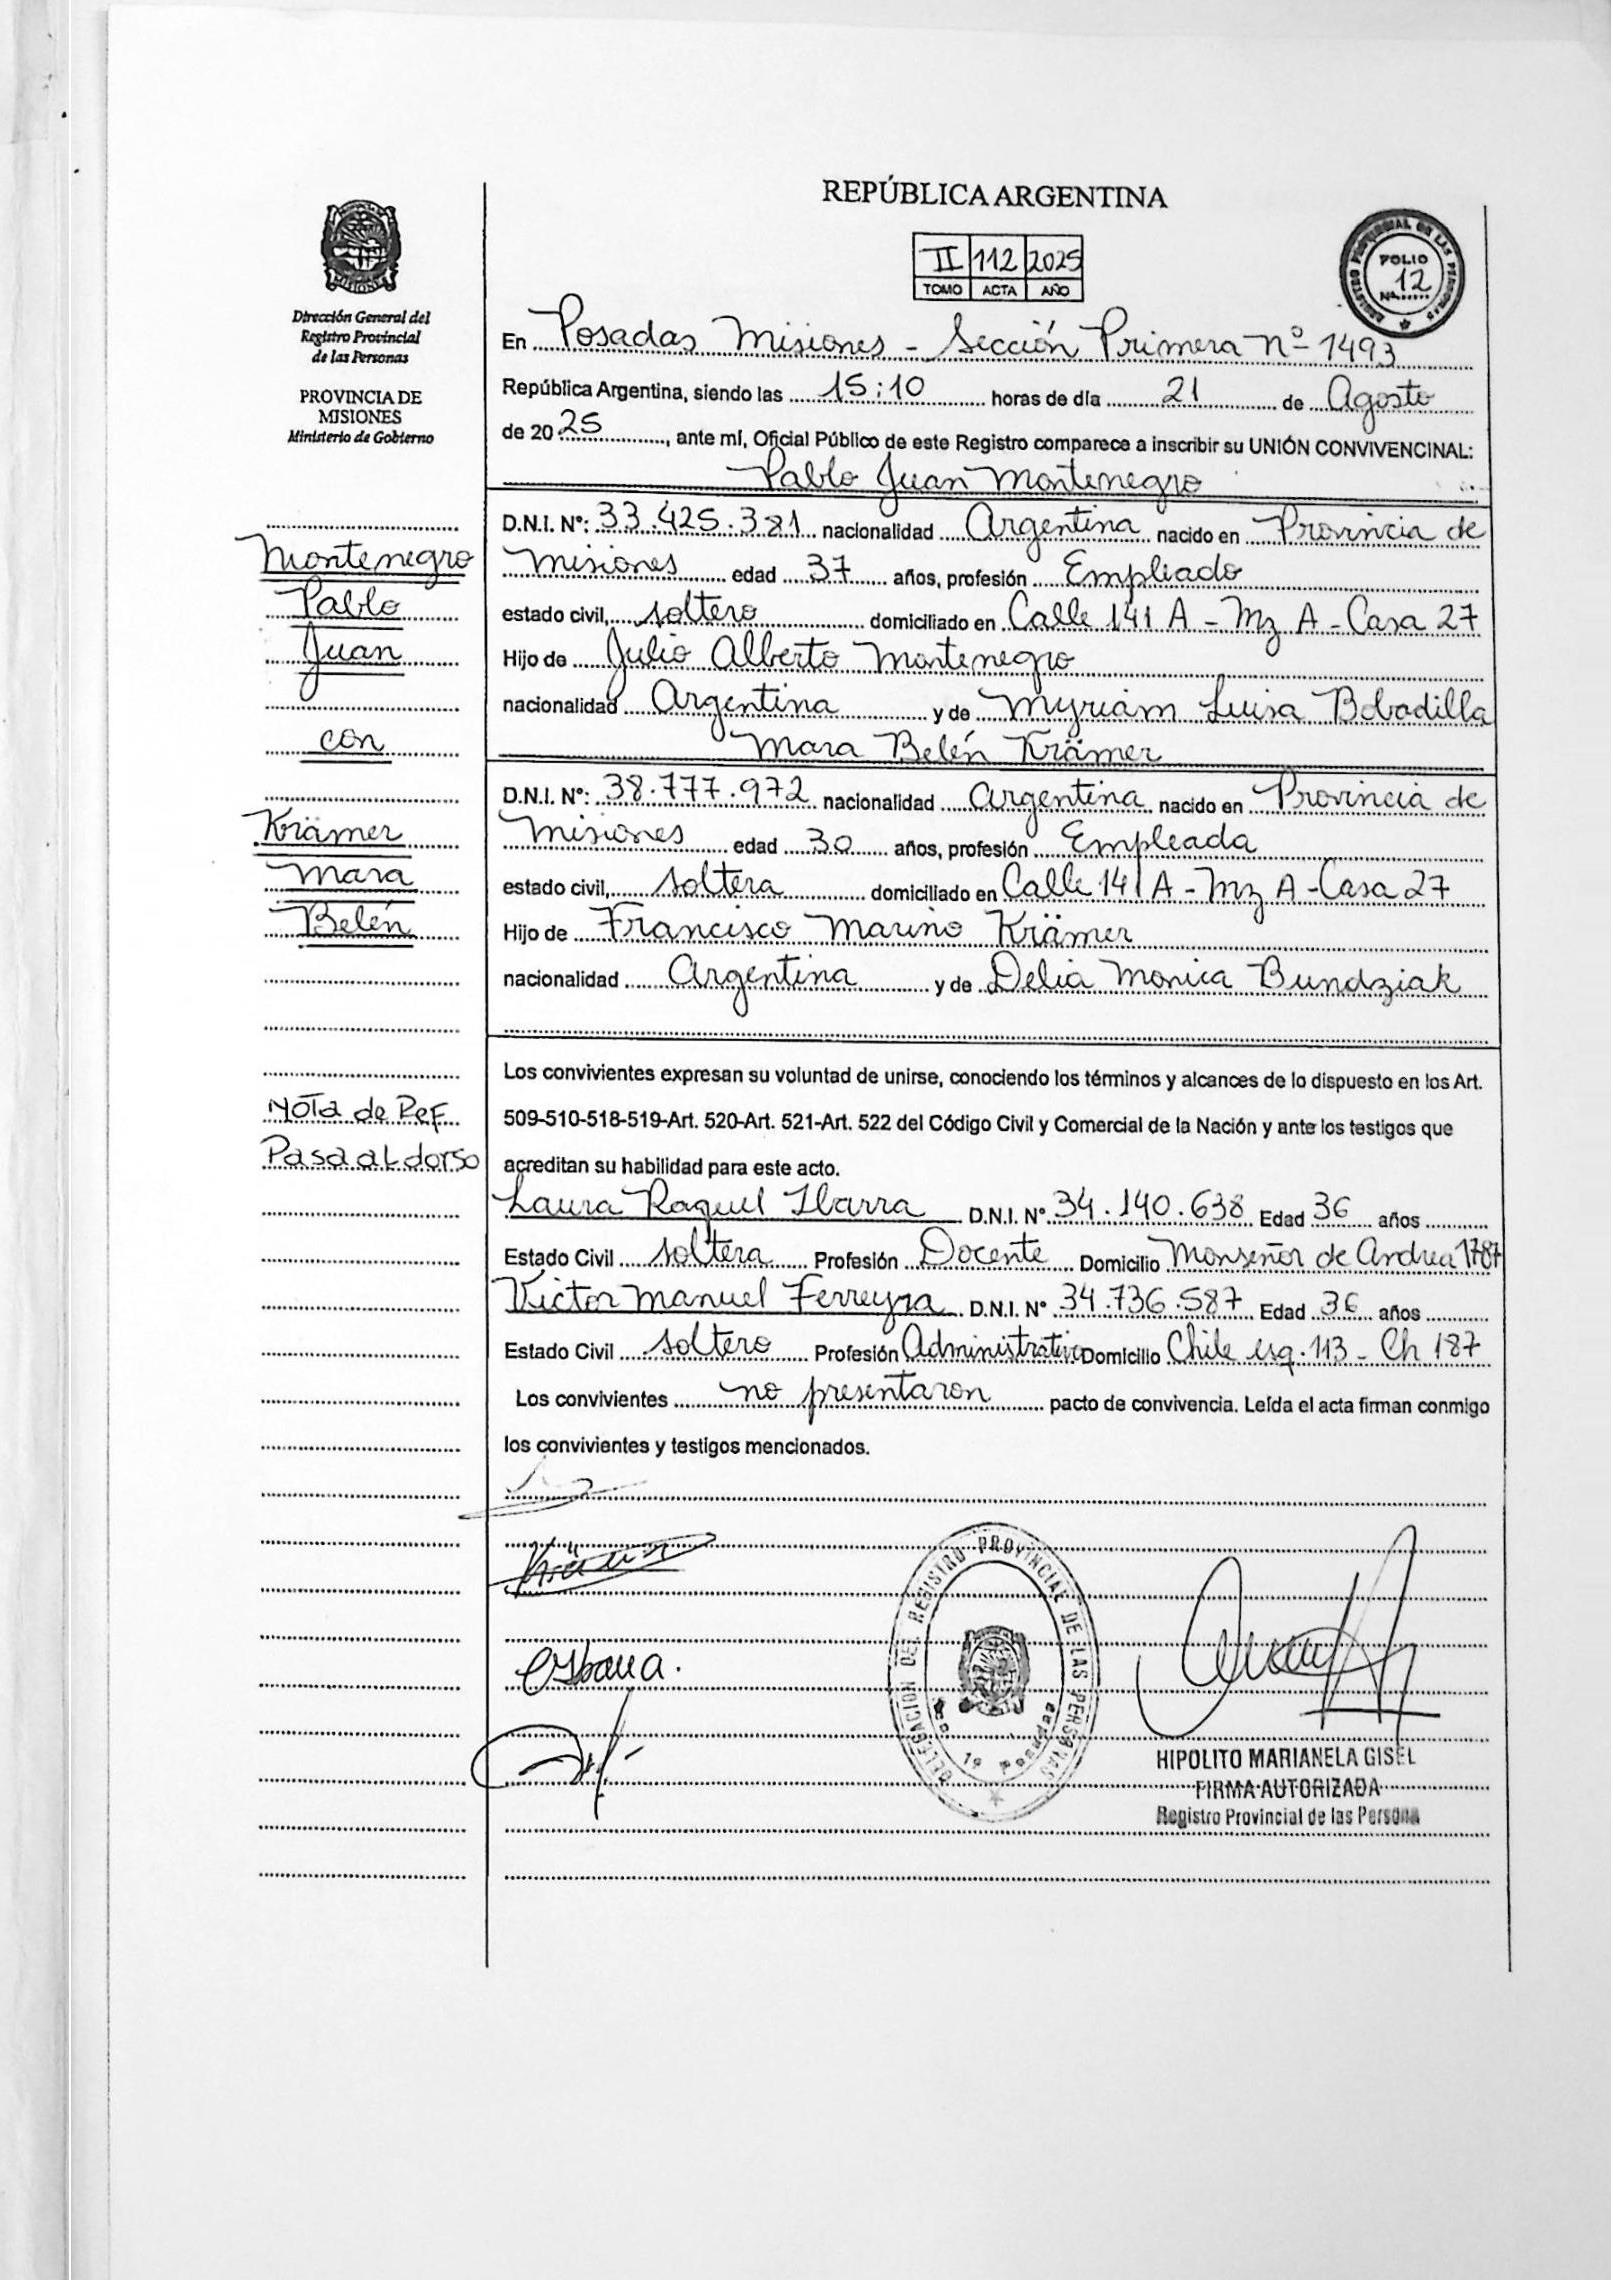 REPÚBLICA ARGENTINA
II 112 2025
TOMO ACTA AÑO
REGISTRO PROVINCIAL DE LAS PERSONAS
FOLIO
Nº 12
Dirección General del
Registro Provincial
de las Personas
PROVINCIA DE
MISIONES
Ministerio de Gobierno
En Posadas Misiones - Sección Primera nº 1493
República Argentina, siendo las 15:10 horas de día 21 de Agosto
de 2025, ante mí, Oficial Público de este Registro comparece a inscribir su UNIÓN CONVIVENCINAL:
Pablo Juan Montenegro
D.N.I. Nº: 33.425.381 nacionalidad Argentina nacido en Provincia de
Misiones edad 37 años, profesión Empleado
estado civil, soltero domiciliado en Calle 141 A - Mz A - Casa 27
Hijo de Julio Alberto Montenegro
nacionalidad Argentina y de Myriam Luisa Bobadilla
Mara Belén Krämer
D.N.I. Nº: 38.777.972 nacionalidad Argentina nacido en Provincia de
Misiones edad 30 años, profesión Empleada
estado civil, soltera domiciliado en Calle 141 A - Mz A - Casa 27
Hijo de Francisco Marino Krämer
nacionalidad Argentina y de Delia Monica Bundziak
Montenegro
Pablo
Juan
con
Krämer
Mara
Belén
Nota de Ref.
Pasa al dorso
Los convivientes expresan su voluntad de unirse, conociendo los términos y alcances de lo dispuesto en los Art.
509-510-518-519-Art. 520-Art. 521-Art. 522 del Código Civil y Comercial de la Nación y ante los testigos que
acreditan su habilidad para este acto.
Laura Raquel Ibarra D.N.I. Nº 34.140.638 Edad 36 años
Estado Civil soltera Profesión Docente Domicilio Monseñor de Andrea 1787
Victor Manuel Ferreyra D.N.I. Nº 34.736.587 Edad 36 años
Estado Civil soltero Profesión Administrativo Domicilio Chile esq. 113 - Ch 187
Los convivientes no presentaron pacto de convivencia. Leída el acta firman conmigo
los convivientes y testigos mencionados.
Krämer
Ibarra.
DELEGACION DEL REGISTRO PROVINCIAL DE LAS PERSONAS
HIPOLITO MARIANELA GISEL
FIRMA AUTORIZADA
Registro Provincial de las Persona